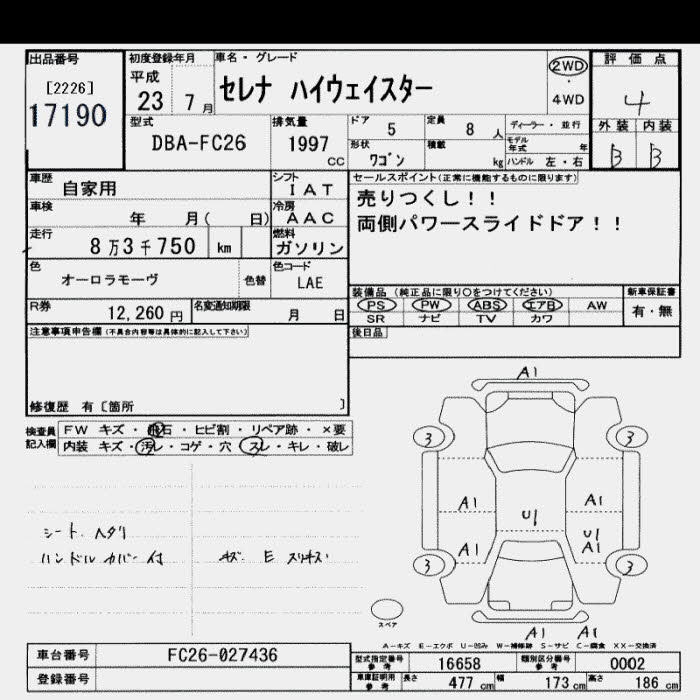 出品番号
[2226]
17190
初度登録年月
平成
23 7月
車名・グレード
セレナ ハイウェイスター
2WD
・
4WD
評価点
4
外装 内装
B B
型式
DBA-FC26
排気量
1997
CC
ドア 5
定員 8 人
形状 ワゴン
積載 kg
ディーラー・並行
モデル年式 年
ハンドル 左・右
車歴 自家用
シフト IAT
車検 年 月( 日)
冷房 AAC
走行 8万3千750 km
燃料 ガソリン
色 オーロラモーヴ
色替
色コード LAE
R券 12,260円
名変通知期限 月 日
セールスポイント(正常に機能するものに限ります)
売りつくし!!
両側パワースライドドア!!
装備品 (純正品に限り○をつけてください)
PS PW ABS エアB AW
SR ナビ TV カワ
新車保証書
有・無
後日品
注意事項申告欄(不具合内容等は具体的に記入して下さい)
修復歴 有〔箇所 〕
検査員記入欄
FW キズ・飛石・ヒビ割・リペア跡・×要
内装 キズ・汚レ・コゲ・穴・スレ・キレ・破レ
シート ヘタリ
ハンドル カバー 付
キズ E スリキズ
A1
3 3
A1 A1
U1
U1
A1 A1
3 3
スペア
A1 A1
A-キズ E-エクボ U-凹み W-補修跡 S-サビ C-腐食 XX-交換済
車台番号 FC26-027436
登録番号
型式指定番号 参考 16658
類別区分番号 参考 0002
車庫証明用 参考 長さ 477 cm 幅 173 cm 高さ 186 cm